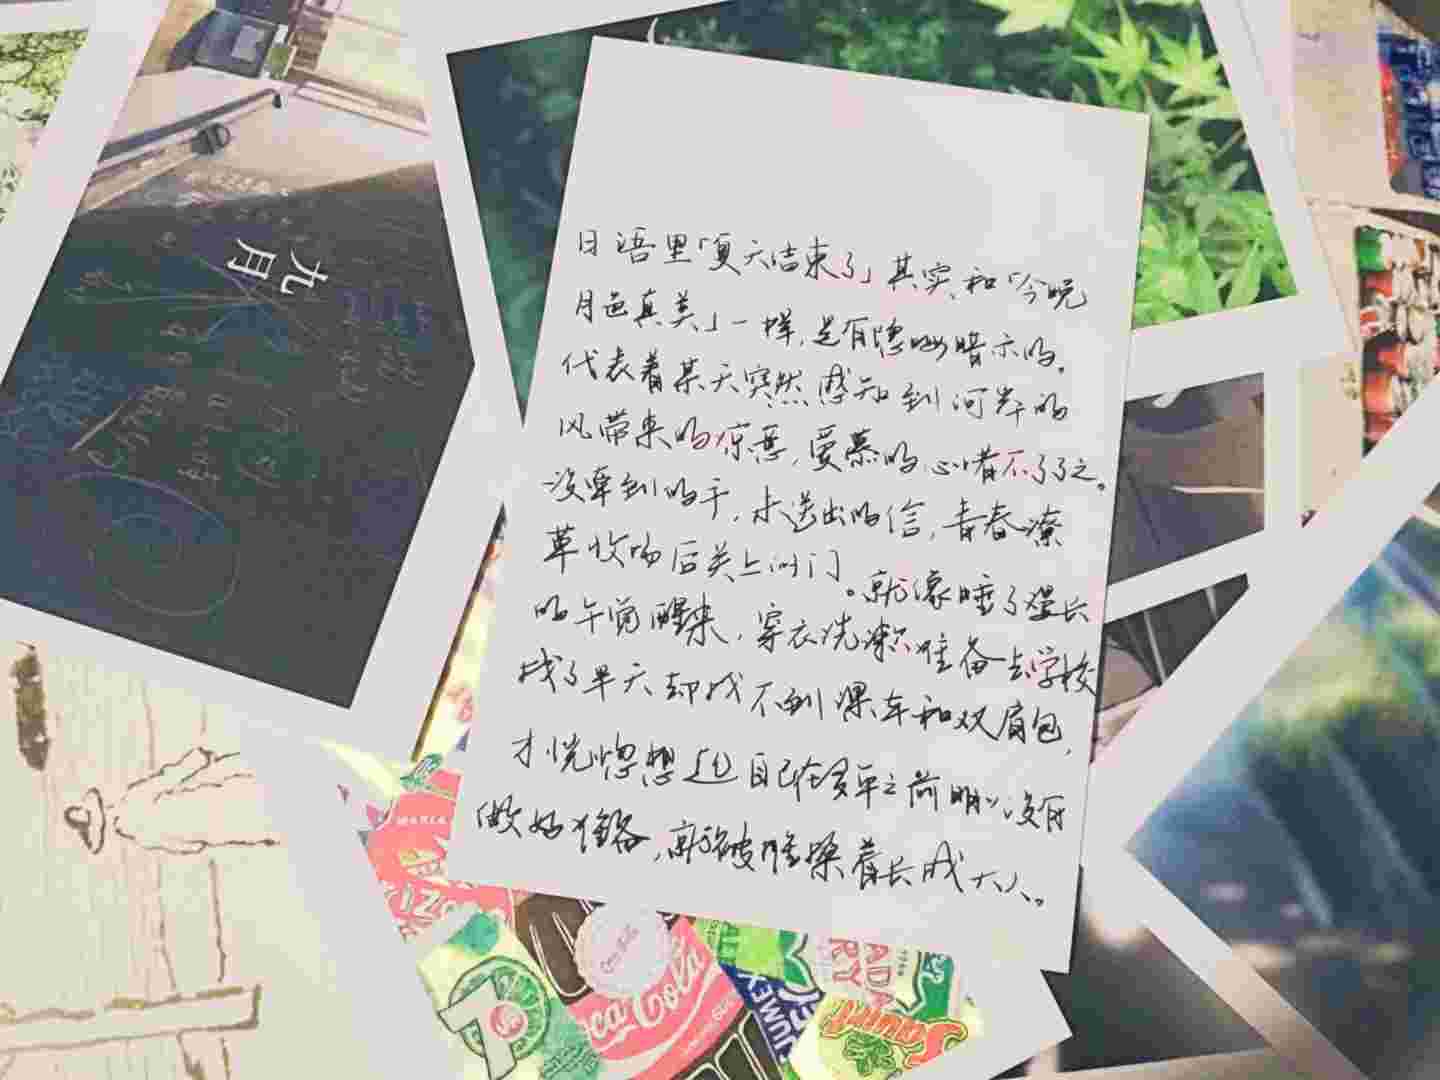 日语里「夏天结束了」其实和「今晚
月色真美」一样,是有隐晦暗示的。
代表着某天突然感知到河岸的
风带来的凉意,爱慕的心绪不了了之。
没牵到的手,未送出的信,青春潦
草收场后关上的门。就像睡了漫长
的午觉醒来,穿衣洗漱准备去学校
找了半天却找不到课本和双肩包,
才恍惚想起自己在多年之前明明没有
做好准备,就被推搡着长成大人。
九月
Coca-Cola
JUMEX
Squirt